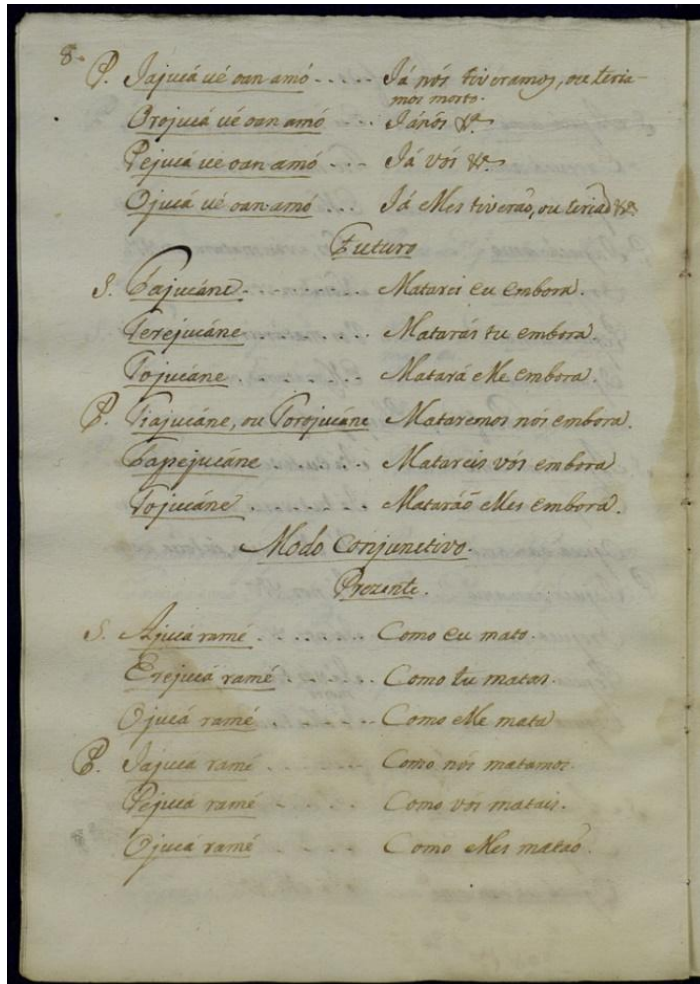 8.
P. Jajucá ué oan amó .... Já nós tiveramos, ou teria-
mos morto.
Orojucá ué oan amó .. Já nós &ª
Pejucá ué oan amó ... Já vós &ª
Ojucá ué oan amó ... Já elles tiverão, ou terião &ª
Futuro
S. Tajucáne .......... Matarei eu embora.
Terejucáne ........ Matarás tu embora.
Tojucáne ......... Matará elle embora.
P. Tiajucáne, ou Torojucáne Mataremos nós embora.
Tapejucáne ....... Matareis vós embora
Tojucáne ........ Matarão elles embora.
Modo Conjunctivo.
Prezente.
S. Ajucá ramé ....... Como eu mato.
Erejucá ramé ...... Como tu matas.
Ojucá ramé ....... Como elle mata
P. Jajucá ramé ....... Como nós matamos.
Pejucá ramé ...... Como vós matais.
Ojucá ramé ...... Como elles matão.